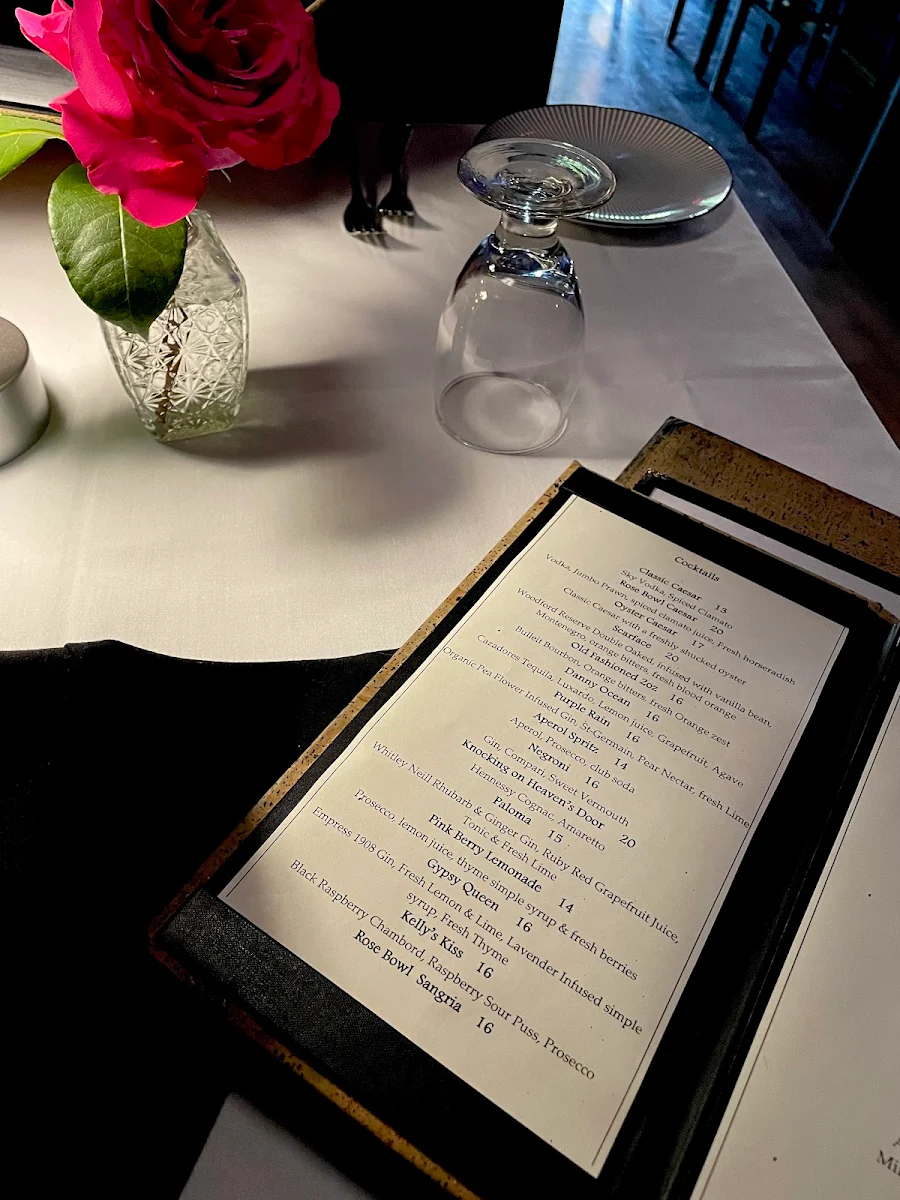 Cocktails
Classic Caesar 13
Sky Vodka, Spiced Clamato
Rose Bowl Caesar 20
Vodka, Jumbo Prawn, spiced clamato juice, Fresh horseradish
Oyster Caesar 17
Classic Caesar with a freshly shucked oyster
Scarface 20
Woodford Reserve Double Oaked, infused with vanilla bean,
Montenegro, orange bitters, fresh blood orange
Old Fashioned 2oz 16
Bulleit Bourbon, Orange bitters, fresh Orange zest
Danny Ocean 16
Cazadores Tequila, Luxardo, Lemon juice, Grapefruit, Agave
Purple Rain 16
Organic Pea Flower Infused Gin, St-Germain, Pear Nectar, fresh Lime
Aperol Spritz 14
Aperol, Prosecco, club soda
Negroni 16
Gin, Compari, Sweet Vermouth
Knocking on Heaven's Door 20
Hennessy Cognac, Amaretto
Paloma 15
Whitley Neill Rhubarb & Ginger Gin, Ruby Red Grapefruit Juice,
Tonic & Fresh Lime
Pink Berry Lemonade 14
Prosecco, lemon juice, thyme simple syrup & fresh berries
Gypsy Queen 16
Empress 1908 Gin, Fresh Lemon & Lime, Lavender Infused simple
syrup, Fresh Thyme
Kelly's Kiss 16
Black Raspberry Chambord, Raspberry Sour Puss, Prosecco
Rose Bowl Sangria 16